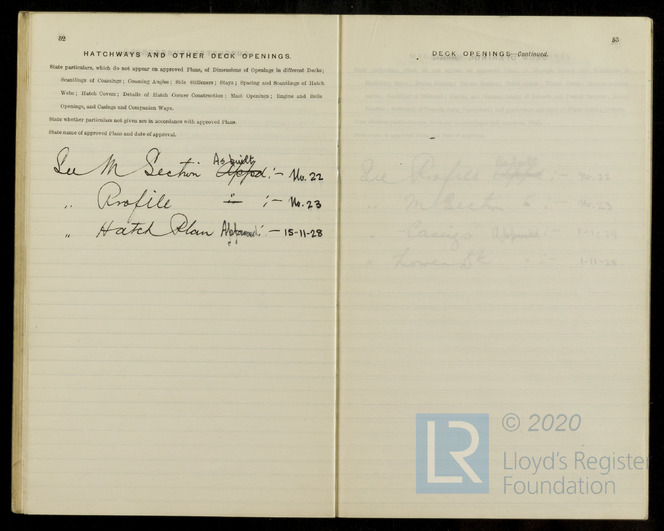 52
HATCHWAYS AND OTHER DECK OPENINGS.
State particulars, which do not appear on approved Plans, of Dimensions of Openings in different Decks;
Scantlings of Coamings; Coaming Angles; Side Stiffeners; Stays; Spacing and Scantlings of Hatch
Webs; Hatch Covers; Details of Hatch Corner Construction; Mast Openings; Engine and Boiler
Openings, and Casings and Companion Ways.
State whether particulars not given are in accordance with approved Plans.
State name of approved Plans and date of approval.
As built
See M Section Appd :- No. 22
" Profile " :- No. 23
" Hatch Plan Approved :- 15-11-28
53
DECK OPENINGS—Continued.
LR
© 2020
Lloyd's Register
Foundation